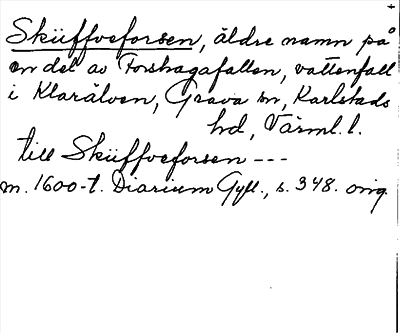 Skiiffveforsen, äldre namn på
en del av Forshagafallen, vattenfall
i Klarälven, Grava sn, Karlstads
hd, Värml. l.
till Skiiffveforsen ---
m. 1600-t. Diarium Gyll., s. 348. orig.